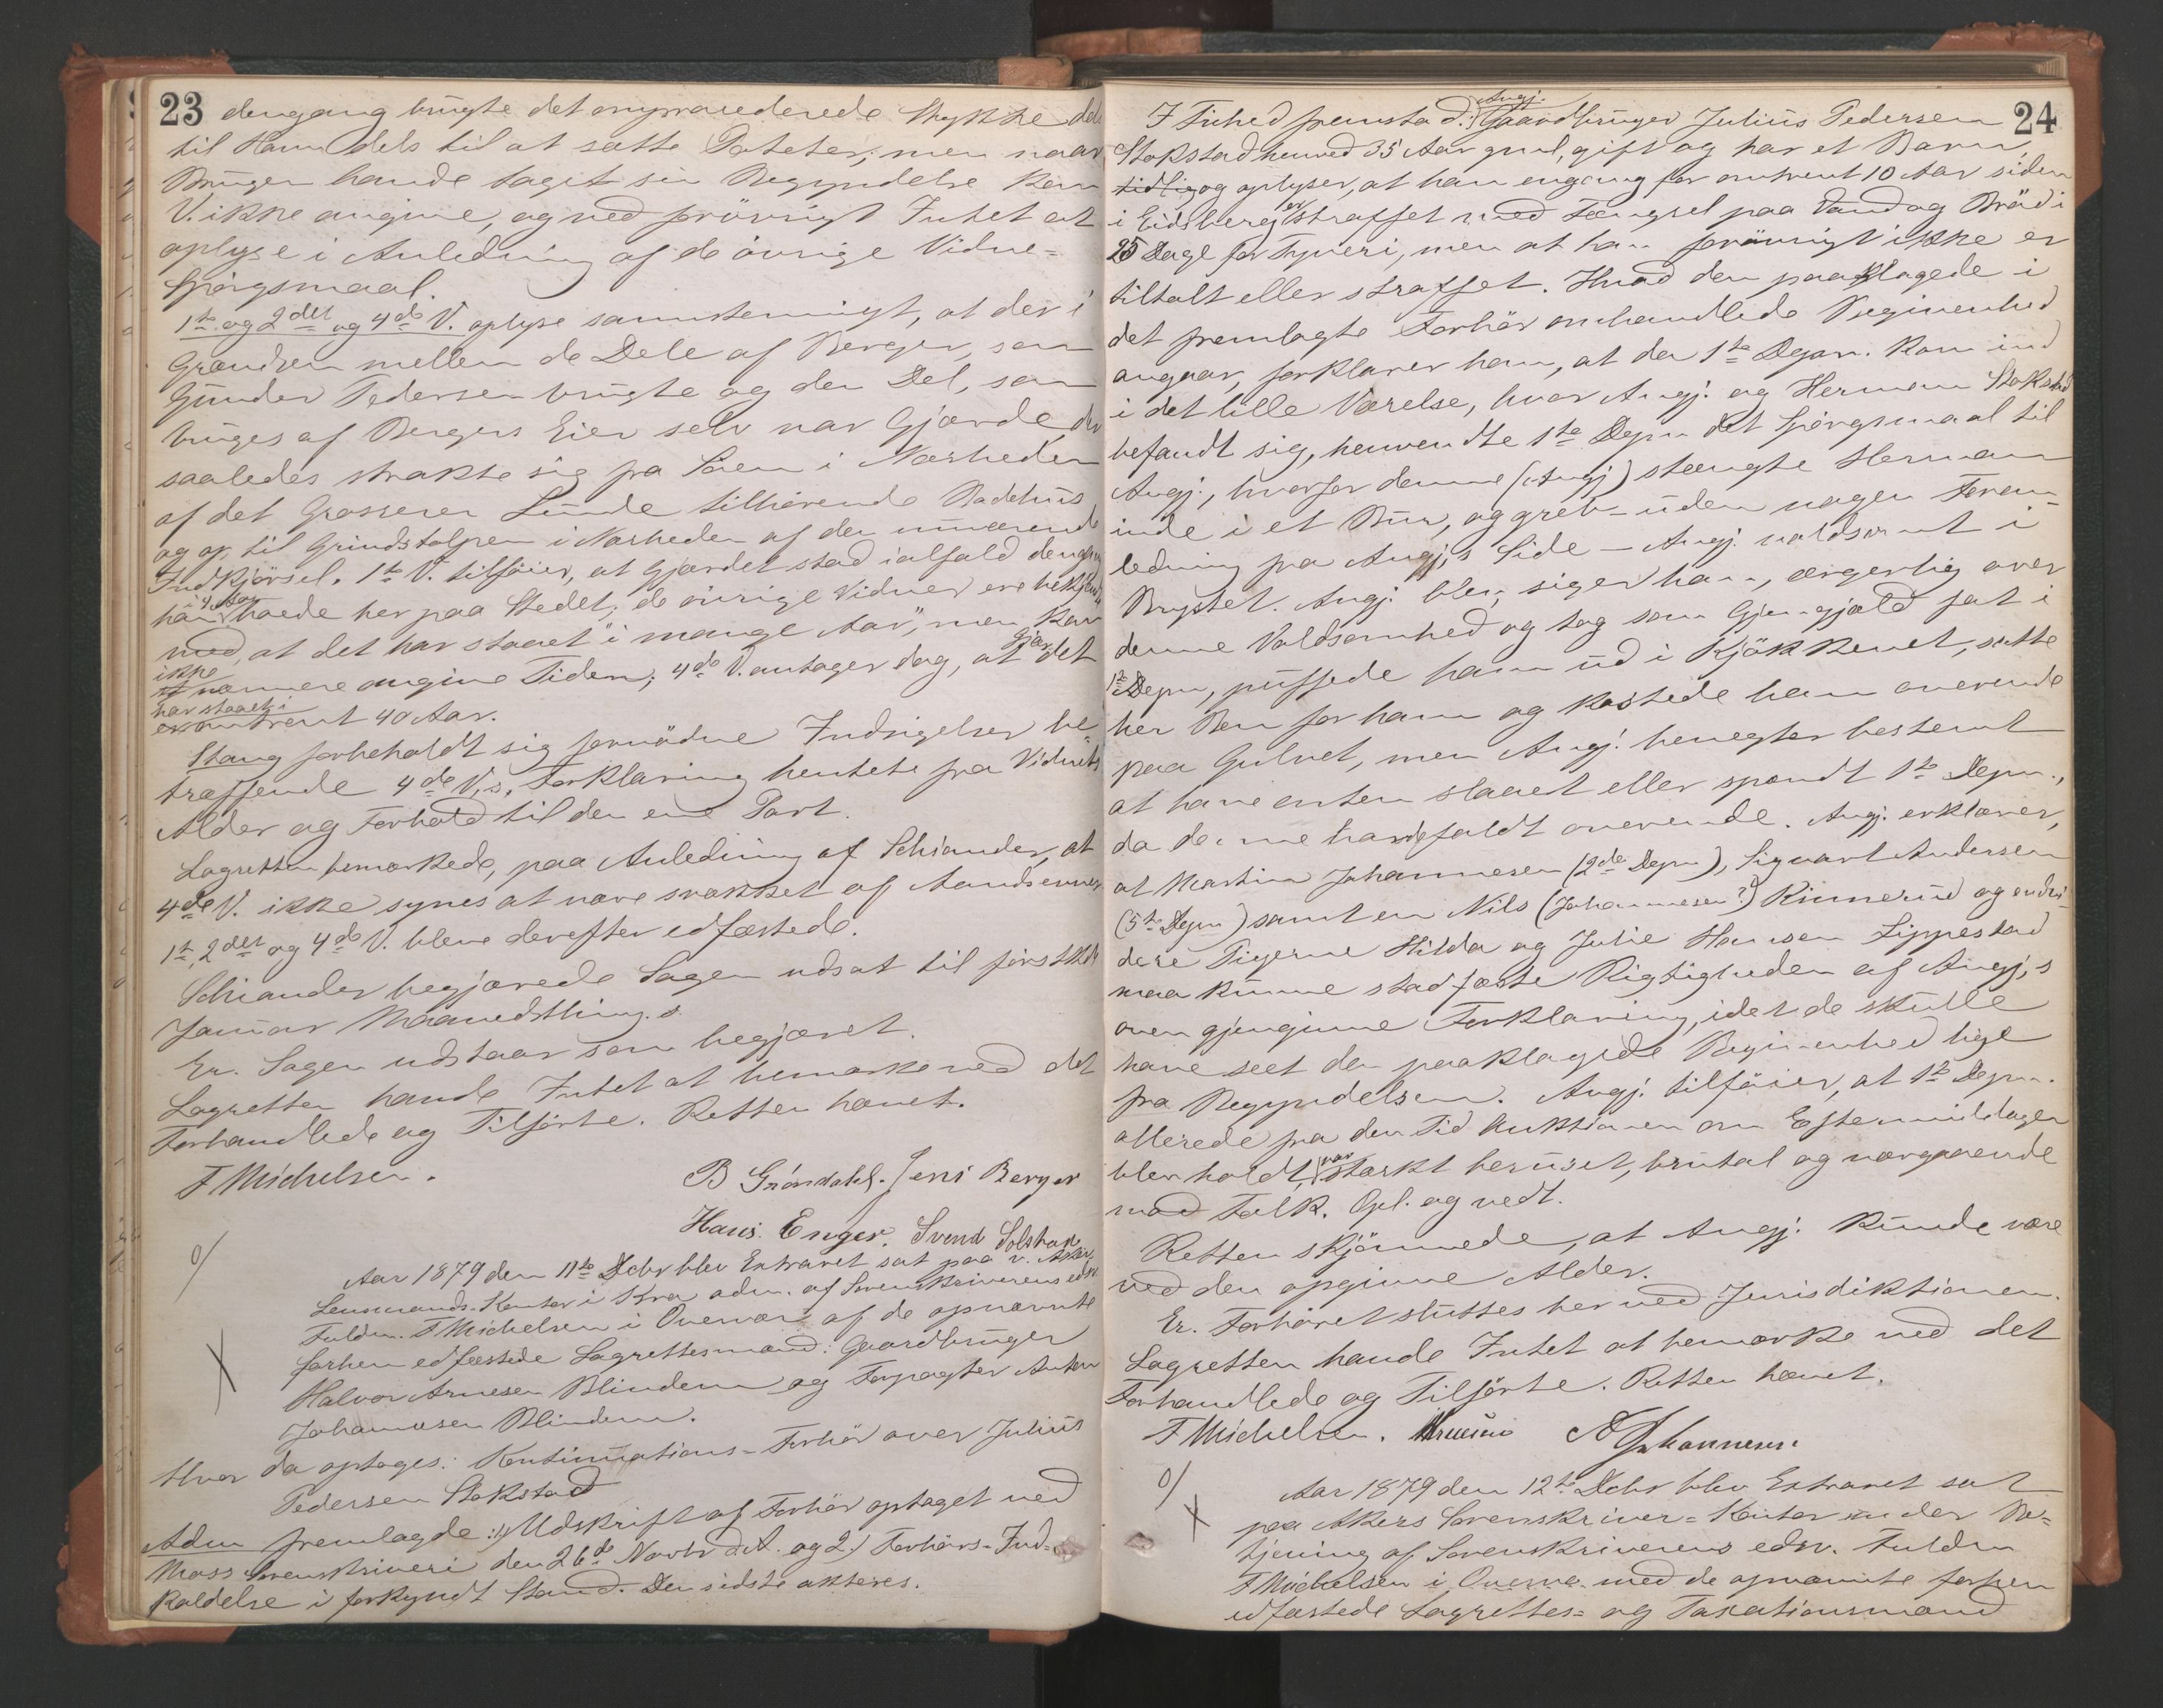 23 dengang brugte det omprocederede Stykke dels
til Havn dels til at sætte Poteter; men naar
Brugen havde taget sin Begyndelse kan
V. ikke angive, og ved forøvrigt Intet at
oplyse i Anledning af de øvrige Vidne-
Spørgsmaal.
1ste og 2det og 4de V. oplyse samstemmigt, at der i
Grændsen mellem de Dele af Berger, som
Gunder Pedersen brugte og den Del, som
bruges af Bergers Eier selv var Gjærde, der
saaledes strakte sig fra Søen i Nærheden
af det Grosserer Lunde tilhørende Badehus
og op til Grindstolpen i Nærheden af den nuværende
Indkjørsel. 1ste V. tilføier, at Gjærdet stod ialfald dengang
han i 4 Aar boede her paa Stedet; de øvrige Vidner ere bekjendt
med, at det har staaet "i mange Aar", men kan
ikke nærmere angive Tiden; 4de V. antager dog, at Gjærdet
har staaet i omtrent 40 Aar.
Stang forbeholdt sig fornødne Indsigelser be-
træffende 4de V,s, Forklaring hentete fra Vidnets
Alder og Forhold til den ene Part.
Lagretten bemærkede, paa Anledning af Schiander, at
4de V. ikke synes at være svækket af Aandsevner
1ste, 2det og 4de V. bleve derefter edfæstede.
Schiander begjærede Sagen udsat til første
Januar Maanedsthing.
Er. Sagen udstaar som begjæret.
Lagretten havde Intet at bemærke ved det
Forhandlede og Tilførte. Retten hævet.
F Michelsen. B Grøndahl. Jens Berger
Hans Enger. Svend Solstad
Aar 1879 den 11te Debr blev Extraret sat paa v. Akers
Lensmands-Kontor i Kra adm. af Sorenskriverens edsv.
Fuldm. F Michelsen i Overvær af de opnævnte
forhen edfæstede Lagrettesmænd: Gaardbruger
Halvor Arnesen Blindern og Forpagter Anton
Johannesen Blindern.
Hvor da optoges: Kontinuations-Forhør over Julius
Pedersen Stokstad
Adm fremlagde: 1) Udskrift af Forhør optaget ved
Moss Sorenskriveri den 26de Novbr d.A. og 2) Forhørs-Ind-
kaldelse i forkyndt Stand. Den sidste akteres.
24
I Frihed fremstod: Angj. Gaardbruger Julius Pedersen
Stokstad henved 35 Aar gml, gift og har et Barn,
og oplyser, at han engang for omtrent 10 Aar siden
i Eidsberg er straffet med Fængsel paa Vand og Brød i
25 Dage for Tyveri, men at han forøvrigt ikke er
tiltalt eller straffet. Hvad den paaklagede i
det fremlagte Forhør omhandlede Begivenhed
angaar, forklarer han, at da 1ste Depon. kom ind
i det lille Værelse, hvor Angj. og Herman Stokstad
befandt sig, henvendte 1ste Depn det Spørgsmaal til
Angj., hvorfor denne (Angj) stængte Herman
inde i et Bur, og greb – uden nogen Foran-
ledning fra Angj,s Side – Angj. voldsomt i
Brystet. Angj. blev, siger han, ærgerlig over
denne Voldsomhed og tog som Gjengjæld fat i
1ste Depn, puffede ham ud i Kjøkkenet, satte
her Ben for ham og kastede ham overende
paa Gulvet, men Angj. benegter bestemt
at have enten slaaet eller spændt 1ste Depn.,
da denne havde faldt overende. Angj. erklærer,
at Martin Johannesen (2de Depn), Sigvart Andersen
(5te Depn) samt en Nils (Johannesen?) Kinnerud og endvi-
dere Pigerne Hilda og Julie Hansen Tippestad
maa kunne stadfæste Rigtigheden af Angj,s
oven gjengivne Forklaring, idet de skulle
have seet den paaklagede Begivenhed lige
fra Begyndelsen. Angj. tilføier, at 1ste Depn.
allerede fra den Tid Auktionen om Eftermiddagen
blev holdt, var stærkt beruset, brutal og nærgaaende
mod Folk. Opl. og vedt.
Retten skjønnede, at Angj. kunde være
ved den opgivne Alder.
Er. Forhøret sluttes her ved Jurisdiktionen.
Lagretten havde Intet at bemærke ved det
Forhandlede og Tilførte. Retten hævet.
F Michelsen. A Johannesen.
Aar 1879 den 12te Debr blev Extraret sat
paa Akers Sorenskriver-Kontor under Be-
tjening af Sorenskriverens edsv. Fuldm
F Michelsen i Overvær med de opnævnte forhen
edfæstede Lagrettes- og Taxationsmænd